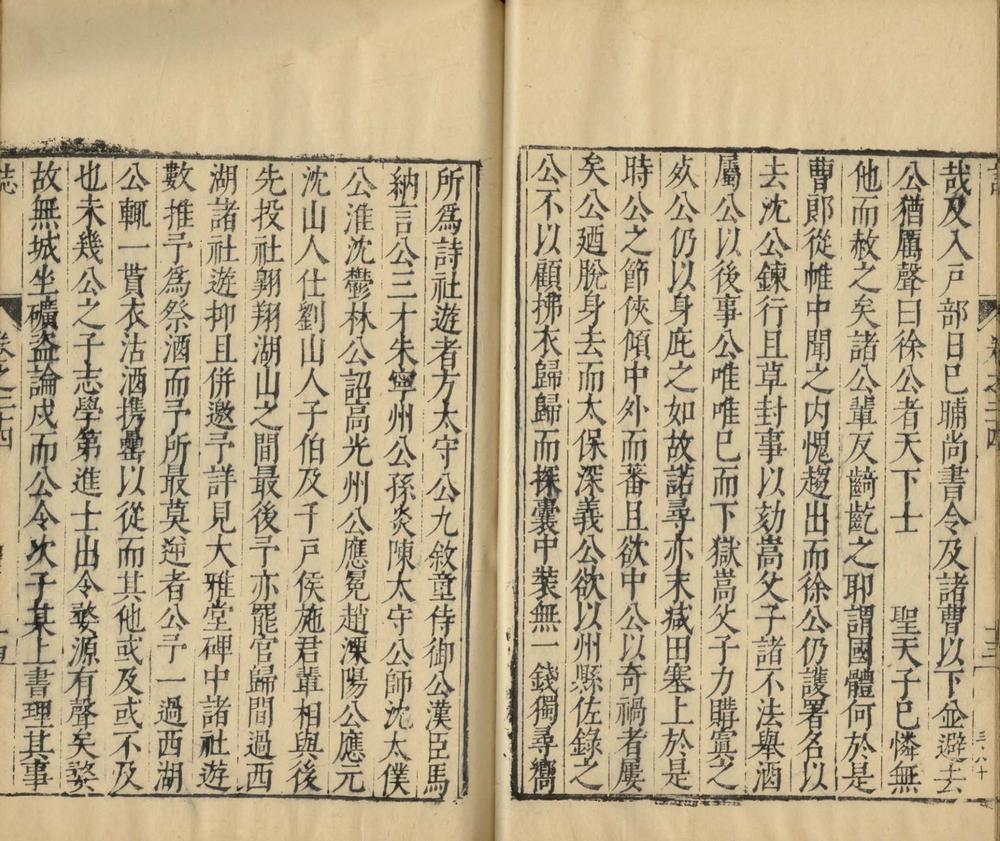 哉及入戸部日已晡尚書令及諸曹以下僉避去
公猶厲聲曰徐公者天下士 聖天子已憐無
他而赦之矣諸公輩反齮齕之耶謂國體何於是
曹郎從帷中聞之内愧趨出而徐公仍護署名以
去沈公鍊行且草封事以劾嵩父子諸不法舉酒
屬公以後事公唯唯已而下獄嵩父子力購寘之
死公仍以身庇之如故諾尋亦末减田塞上於是
時公之節俠傾中外而蕃且欲中公以奇禍者屢
矣公廼脱身去而太保深義公欲以州縣佐錄之
公不以顧拂衣歸歸而探囊中裝無一錢獨尋嚮
所爲詩社遊者方太守公九敘童侍御公漢臣馬
納言公三才朱寧州公孫炎陳太守公師沈太僕
公淮沈鬱林公詔高光州公應冕趙溧陽公應元
沈山人仕劉山人子伯及千戸侯施君輩相與後
先投社翺翔湖山之間最後予亦罷官歸間過西
湖諸社遊抑且併邀予詳見大雅堂碑中諸社遊
數推予爲祭酒而予所最莫逆者公予一過西湖
公輒一貰衣沽酒携罍以從而其他或及或不及
也未幾公之子志學第進士出令婺源有聲矣婺
故無城坐礦盜論戍而公令次子某上書理其事
卷之二十四